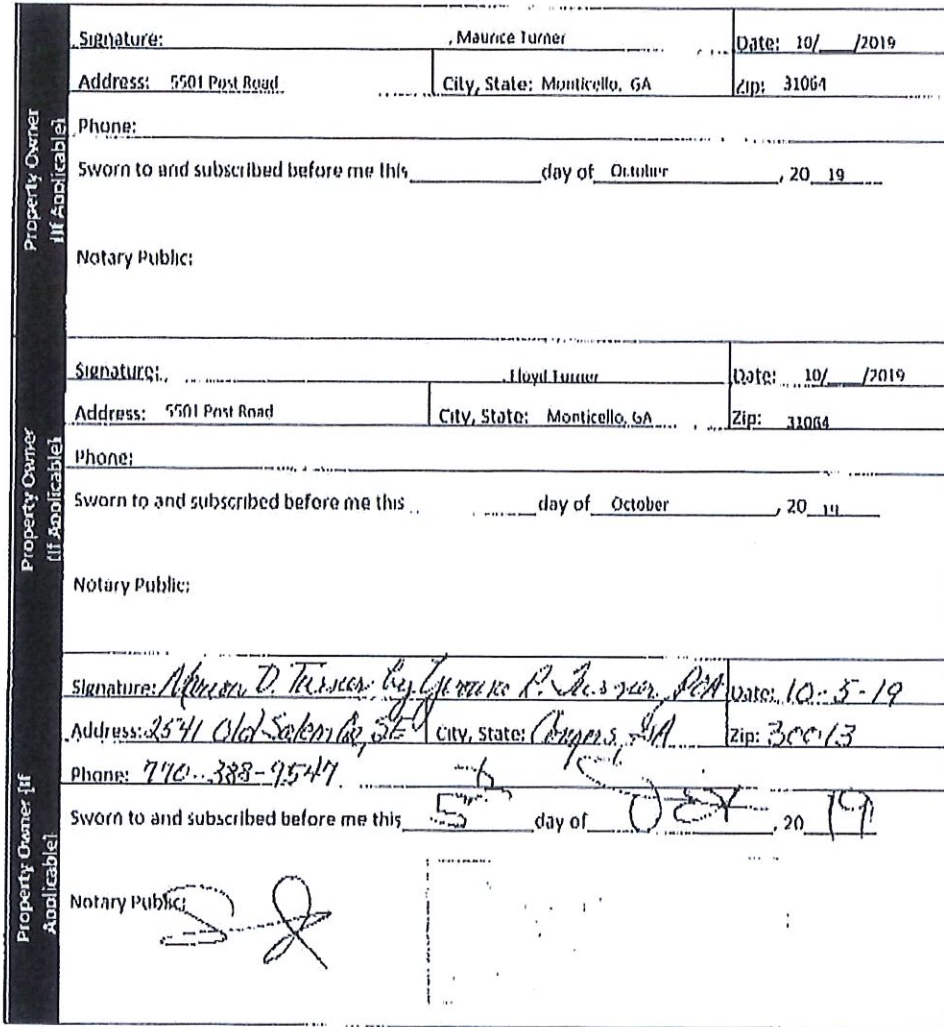 Property Owner
[If Applicable]
Signature: , Maurice Turner Date: 10/___/2019
Address: 5501 Post Road City, State: Monticello, GA Zip: 31064
Phone:
Sworn to and subscribed before me this_______day of October , 20 19
Notary Public:
Property Owner
[If Applicable]
Signature: , Floyd Turner Date: 10/___/2019
Address: 5501 Post Road City, State: Monticello, GA Zip: 31064
Phone:
Sworn to and subscribed before me this day of October , 20 19
Notary Public:
Property Owner [If
Applicable]
Signature: D. Turner by R. Turner POA Date: 10-5-19
Address: 2541 Old Salem SE City, State: Conyers, GA Zip: 30013
Phone: 770-388-9547
Sworn to and subscribed before me this 5th day of Oct , 20 19
Notary Public: